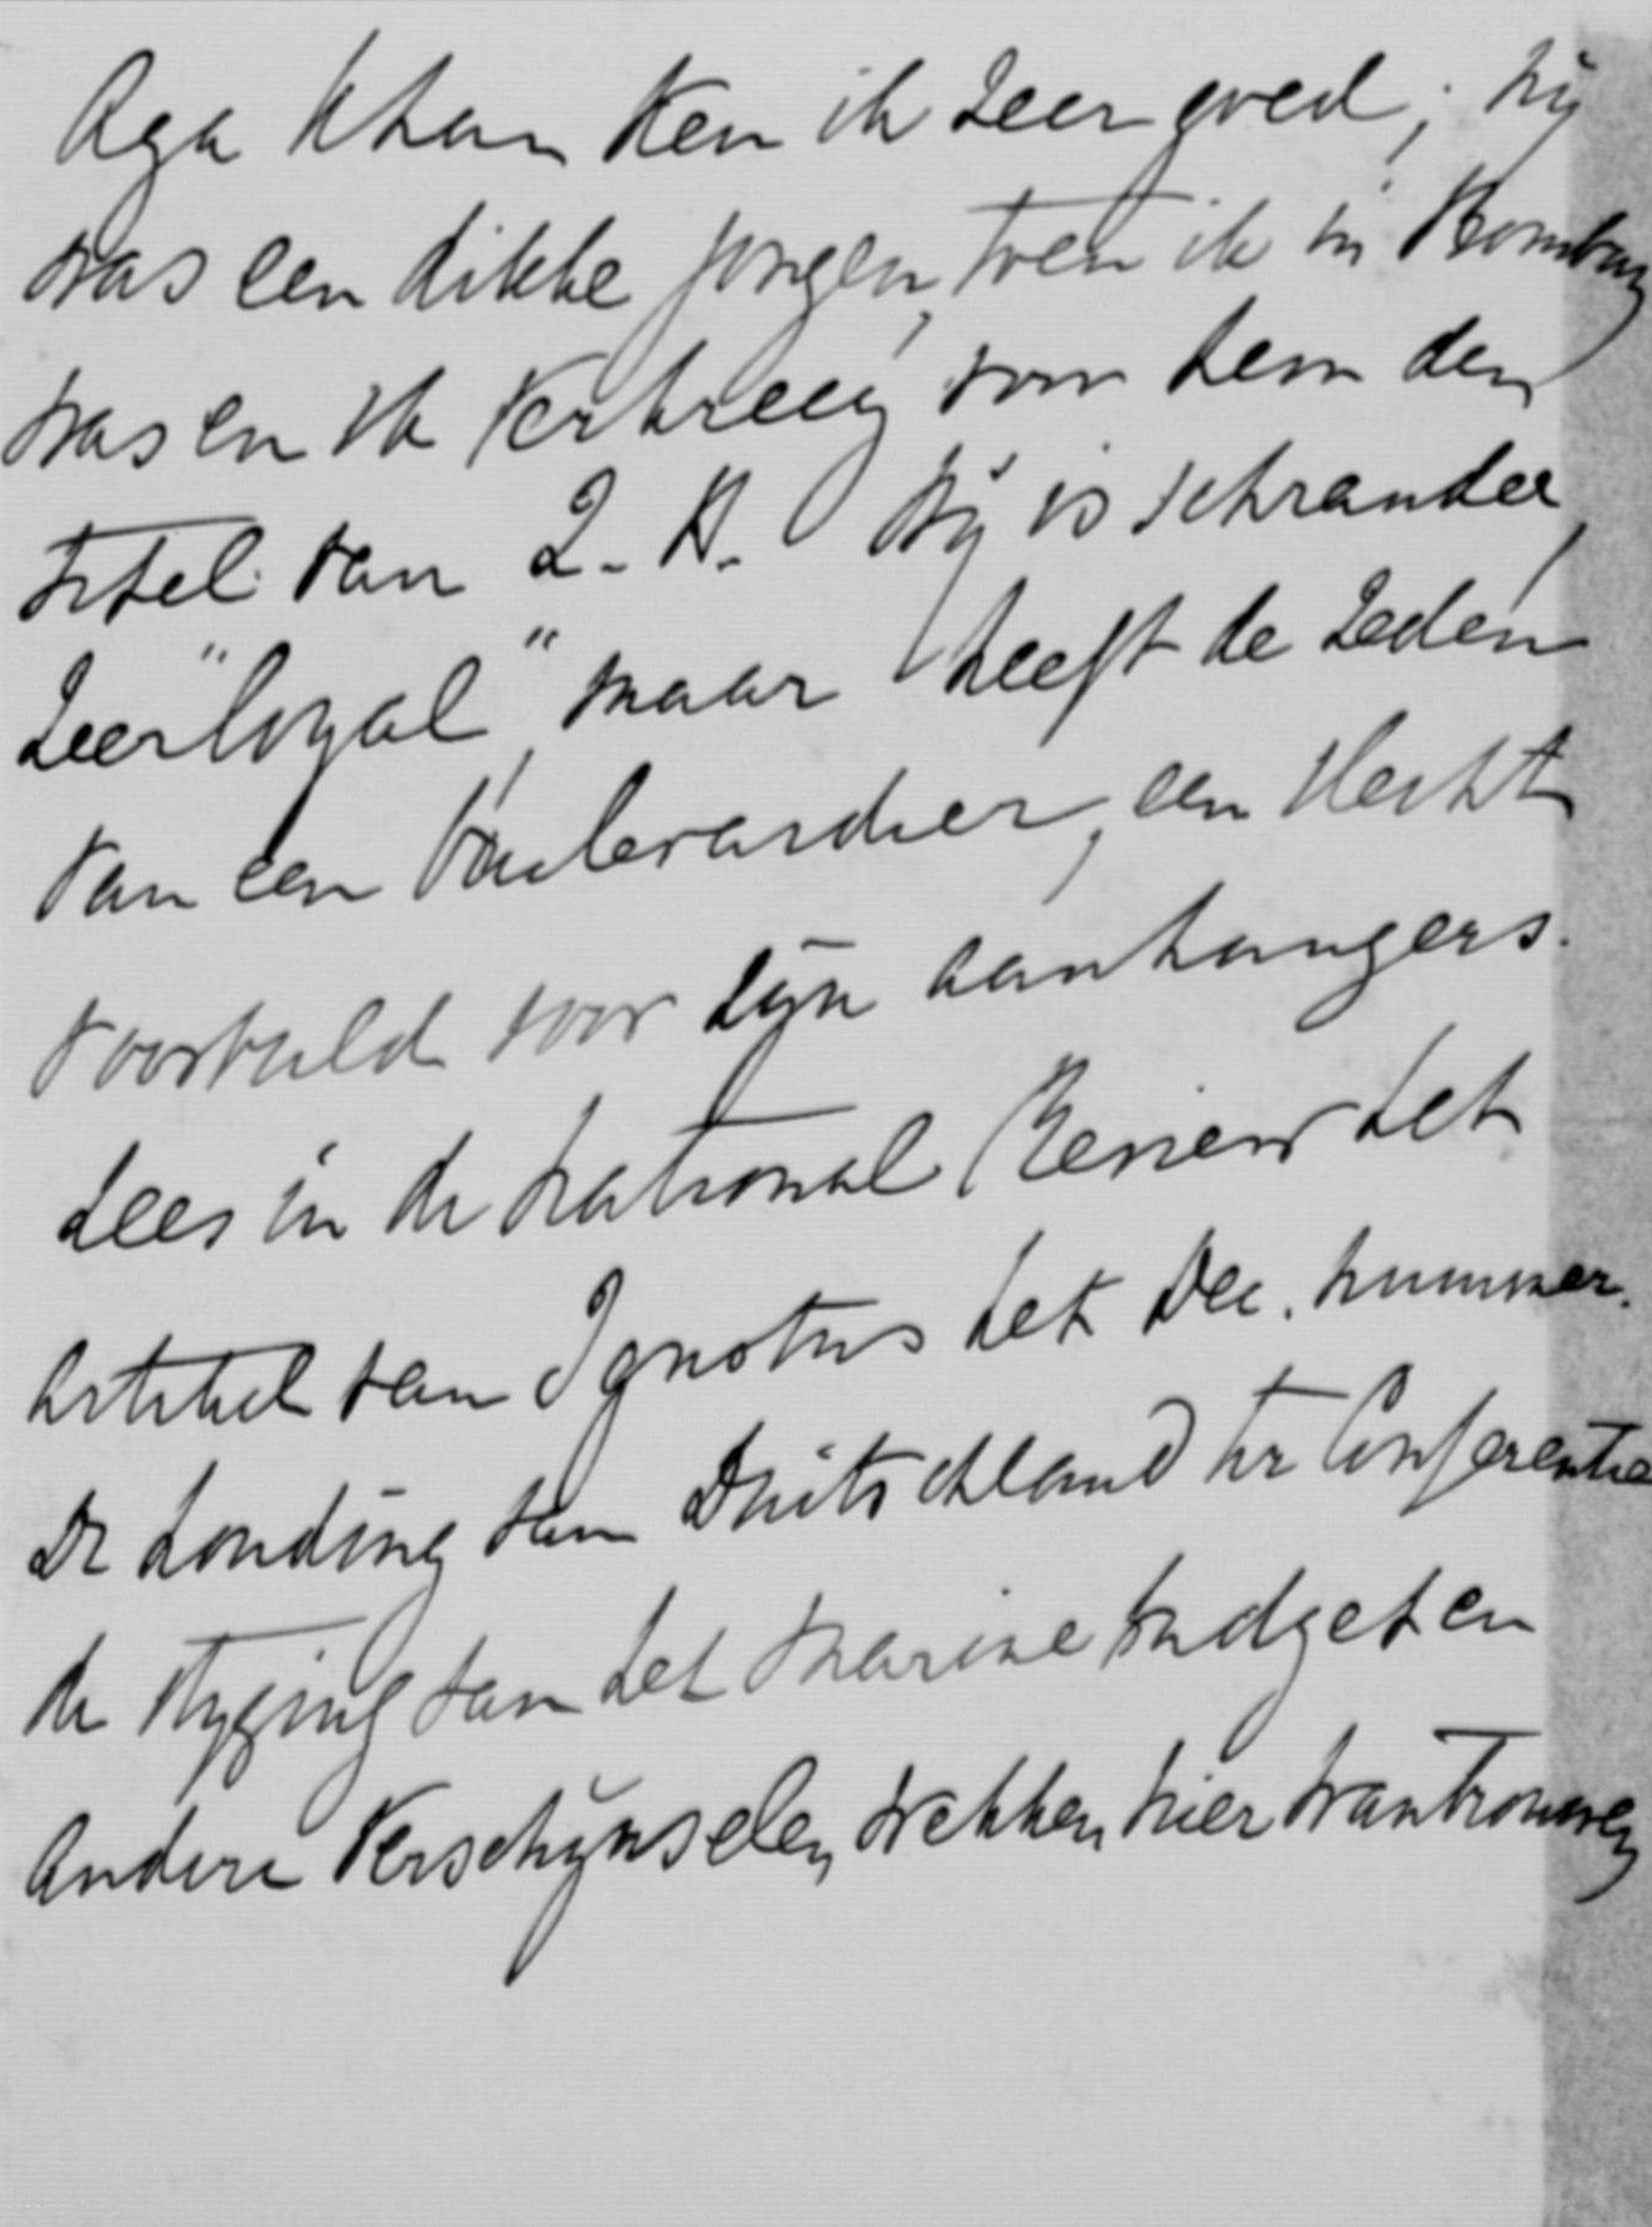 Aga Khan ken ik zeer goed; hij
was een dikke jongen, toen ik in Bombay
was en ik verkreeg voor hem den
titel van Z. H. Hij is schrander,
zeer "loyal", maar heeft de zeden
van een boulevardier, een slecht
voorbeeld voor zijn aanhangers.
Lees in de National Review het
artikel van Ignotus het Dec. nummer.
De houding van Duitschland ter Conferentie
de stijging van het marine budget en
andere verschijnselen wekken hier wantrouwen